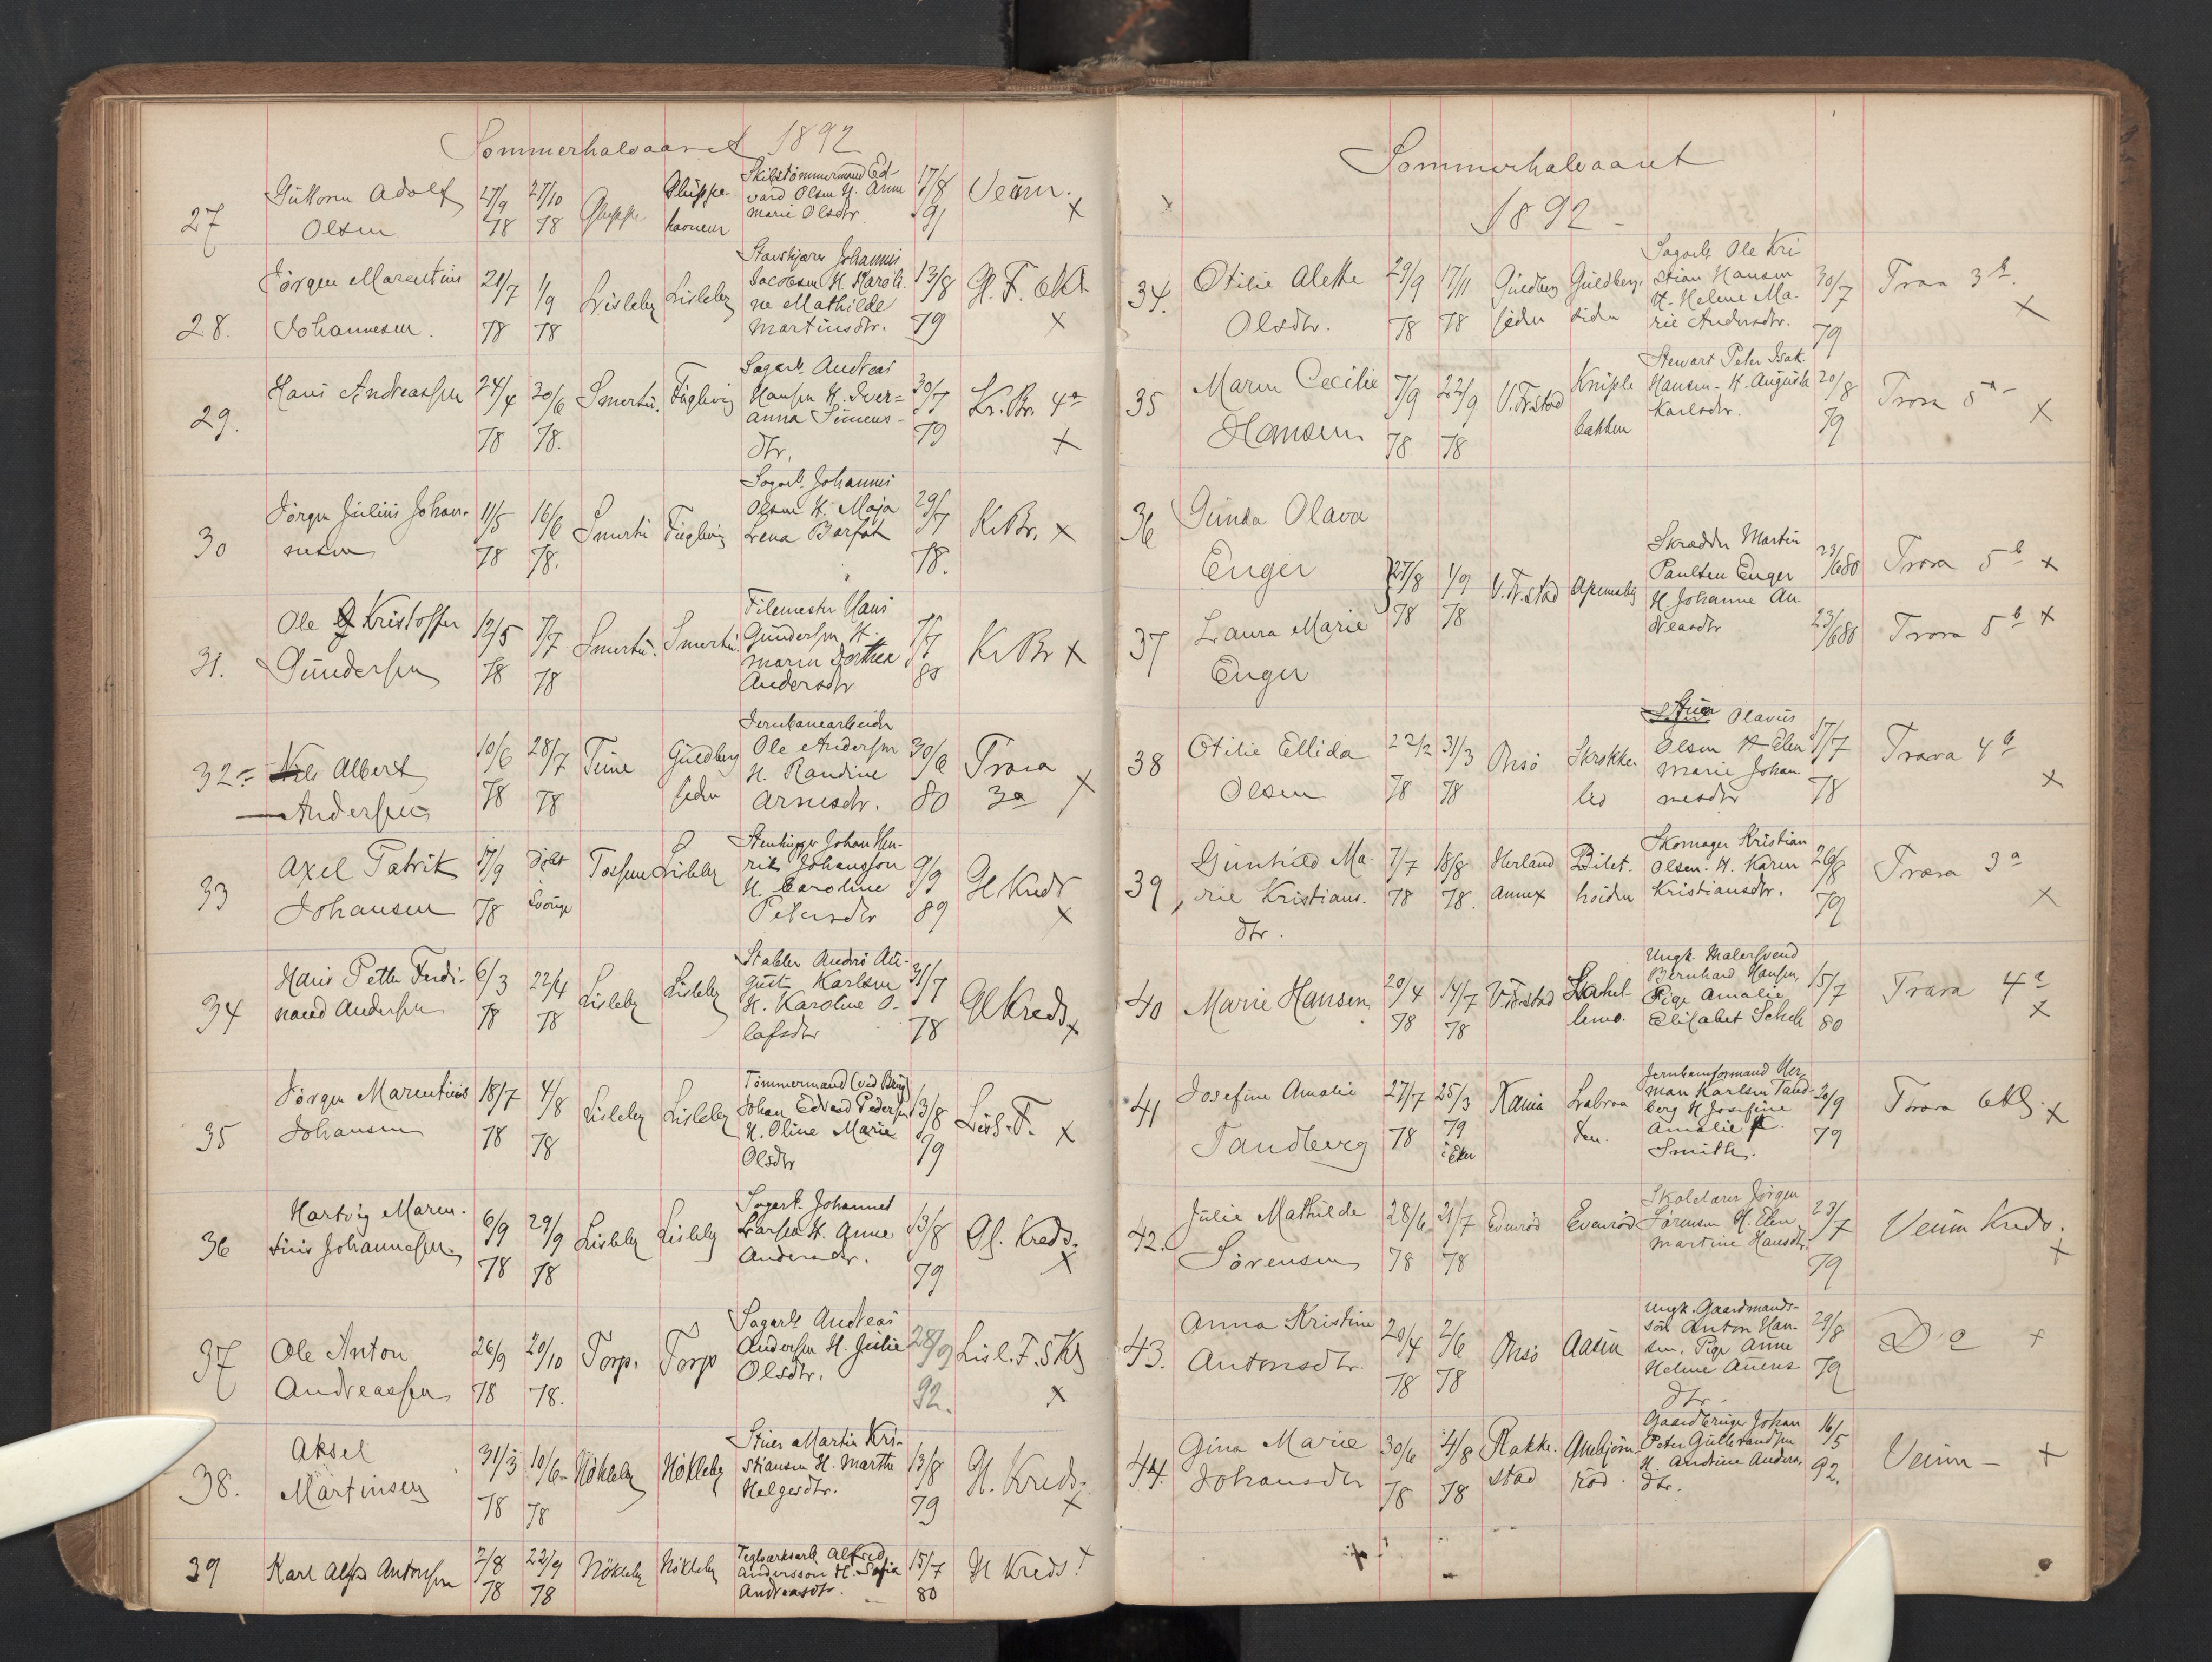 Sommerhalvaaret 1892
27 Guttorm Adolf Olsen 27/9 78 27/10 78 Gluppe Gluppe havnen Skibstømmermand Ed-
vard Olsen H. Anne
Marie Olsdtr. 17/8 91 Veum. x
28. Jörgen Marentius Johannesen. 21/7 78 1/9 78 Lisleby Lisleby Johannes
Jacobsen H. Karoli-
ne Mathilde
Martinsdtr. 13/8 79 Gl. F. 6Kl x
29. Hans Andreassen 24/4 78 30/6 78. Smertu. Fuglevig Sagarb. Andreas
Hansen H. Iver=
anna Simens-
dtr. 30/7 79 Kr. Br. 4a x
30 Jörgen Julius Johan-
nesen 11/5 78 16/6 78. Smertu Fuglevig Sagarb. Johannes
Olsen H. Maja
Lena Barfot 29/7 78. K.Br. x
31. Ole Kristoffer
Gundersen 12/5 78 7/7 78 Smertu. Smertu. Filemester Hans
Gundersen H.
Maren Dorthea
Andersdtr 7/7 80 Kr Br x
32 Nils Albert
Andersen 10/6 78 28/7 78 Tune Guldberg
siden Jernbanearbeider
Ole Andersen
H. Randine
Arnesdtr. 30/6 80 Trara
3a x
33 Axel Patrik
Johansen 17/9 78 döbt
Sverige Tossene Lisleby Stenhugger Johan Hen-
rik Johansson
H. Caroline
Petersdtr 9/9 89 Gl Kreds x
34 Hans Petter Ferdi-
nand Andersen 6/3 78 22/4 78 Lisleby Lisleby Stabler Andrö Au-
gust Karlsen
H. Karoline O-
lafsdtr 31/7 78 Gl Kreds x
35 Jörgen Marentinus
Johansen 18/7 78 4/8 78 Lisleby Lisleby Tömmermand (ved Brug)
Johan Edvard Pedersen
H. Oline Marie
Olsdtr 13/8 79 Lisl. F. x
36 Hartvig Maren-
tius Johannesen 6/9 78 29/9 78 Lisleby Lisleby Sagarb. Johannes
Larsen H. Anne
Andersdtr. 13/8 79 Gl. Kreds. x
37 Ole Anton
Andreassen 26/9 78 20/10 78. Torp. Torp Sagarb Andreas
Andersen H. Julie
Olsdtr. 28/9 92. Lisl. F. 5Kl x
38. Aksel
Martinsen 31/3 78 10/6 78 Nökleby Nökleby Stuer Martin Kri-
stiansen H. Marthe
Helgesdtr. 13/8 79 Gl. Kreds. x
39 Karl Alfred Antonsen 2/8 78 22/9 78 Nökleby Nökleby Teglværksarb Alfred
Andersson H. Sofia
Andreasdtr. 15/7 80 Gl Kreds x
Sommerhalvaaret
1892 -
34. Otilie Alette
Olsdtr. 29/9 78 17/11 78 Guldberg
siden Guldberg-
siden Sagarb Ole Kri
stian Hansen
H. Helene Ma-
rie Andersdtr. 30/7 79 Trara 3b. x
35 Maren Cecilie
Hansen 7/9 78 22/9 78 V. Fr.stad Kniple
bakken Stewart Peter Isak
Hansen - H. Augusta
Karlsdtr. 20/8 79 Trara 5a x
36 Gunda Olava
Enger 27/8 78 1/9 78 V. Fr.stad Apenesby Skrædder Martin
Paulsen Enger
H. Johanne An
dreasdtr 23/6 80 Trara 5b x
37 Laura Marie
Enger 23/6 80 Trara 5b x
38 Otilie Ellida
Olsen 22/2 78 31/3 78 Onsö Skrokke
led Stuer Olavus
Olsen H Elen
Marie Johan
nesdtr 17/7 78 Trara 4a x
39 Gunhild Ma-
rie Kristians-
dtr. 7/7 78 18/8 78. Herland
Annex Bilet-
höiden Skomager Kristian
Olsen. H. Karen
Kristiansdtr. 26/8 79 Trara 3a x
40 Marie Hansen 20/4 78 14/7 78 V. Fr.stad Lahel-
lemo. Ungk. Malersvend
Bernhard Hansen,
Pige Amalie
Elisabet Schel 15/7 80 Trara 4a x
41 Josefine Amalie
Tandberg 27/7 78 25/3 79
i Eker Kania Labraa
ten. Jernbaneformand Her
man Karlsen Tand-
berg H Josefine
Amalie
Smith. 20/9 79 Trara 6Kl. x
42. Julie Mathilde
Sörensen 28/6 78 21/7 78 Evenröd Evenröd Skolelærer Jörgen
Sörensen H. Elen
Martine Hansdtr. 23/7 79 Veum Kreds. x
43. Anna Kristine
Antonsdtr. 20/4 78 2/6 78 Onsö Aasen Ungk. Gaardmands-
sön Anton Han-
sen, Pige Anne
Helene Auens-
dtr. 29/8 79 Do x
44. Gina Marie
Johansdtr 30/6 78 4/8 78 Rakke-
stad Ambjörn-
röd. Gaardbruger Johan
Peter Gulbrandsen
H. Andrine Anders-
dtr. 16/5 92. Veum - x